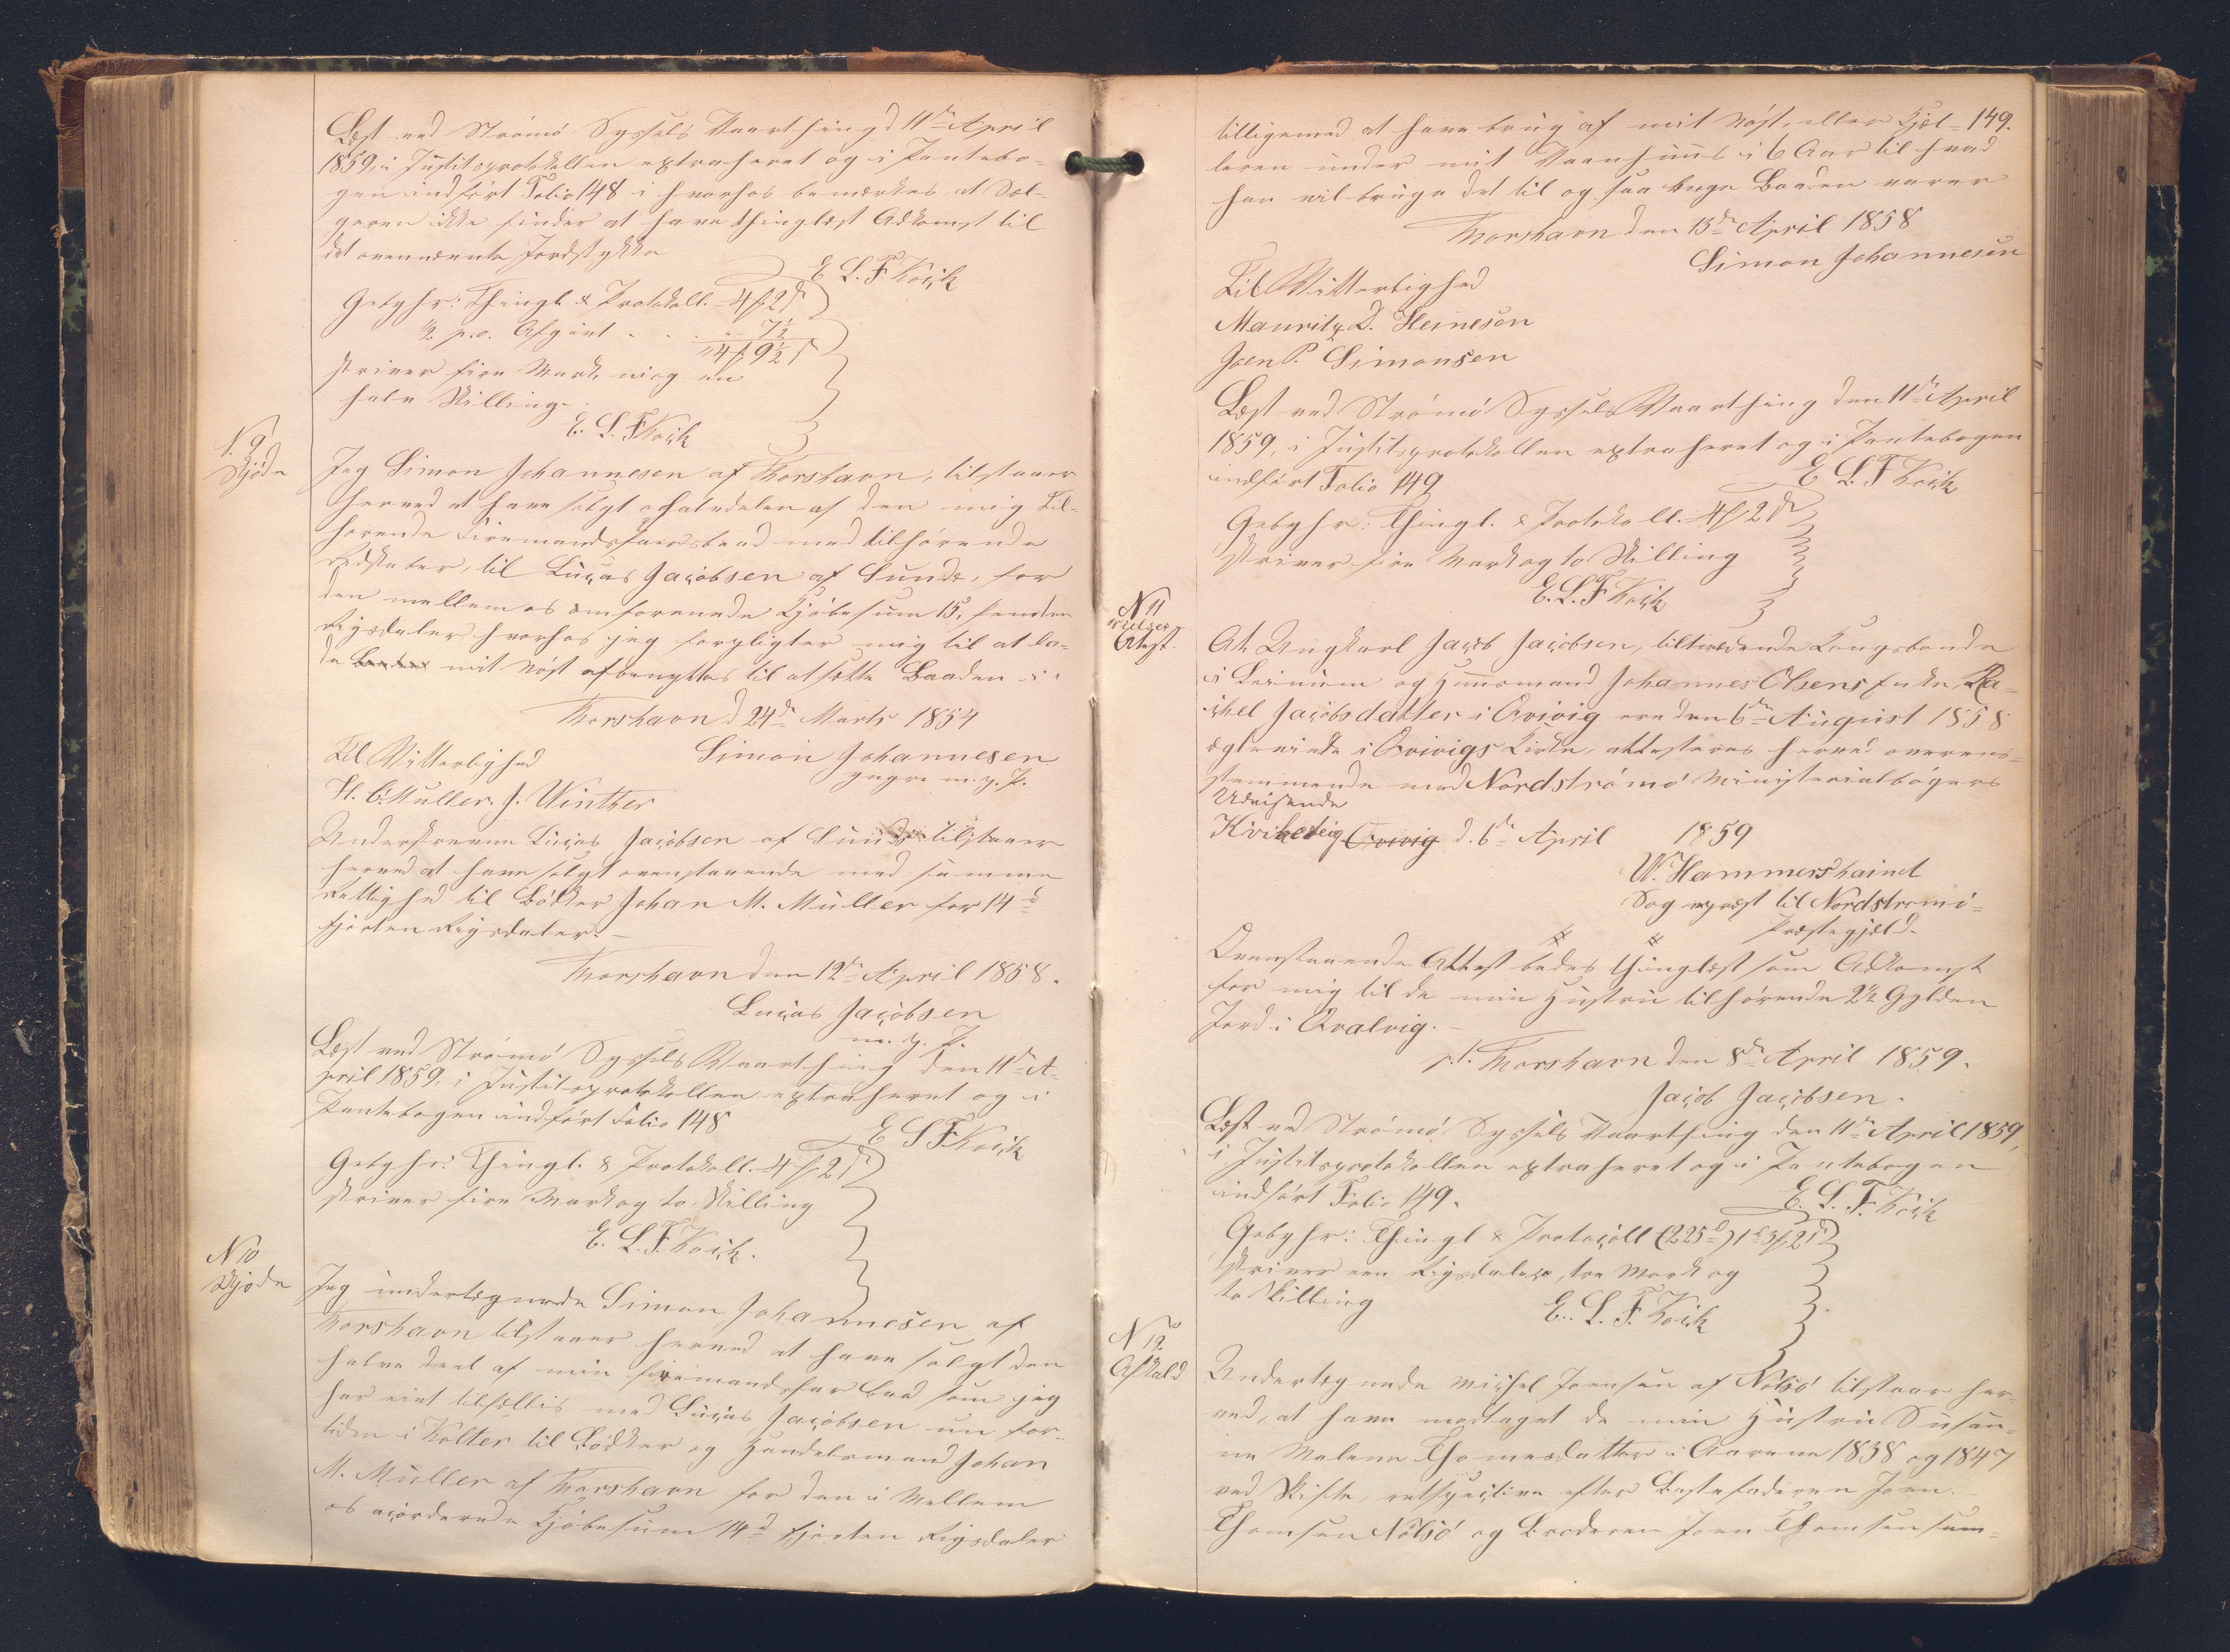 Læst ved Strømø Syssels Vaarthing d 11te April
1859, i Justitsprotokollen extraheret og i Pantebo-
gen indført Folio 148 i hvorhos bemærkes at Sæl-
geren ikke findes at have thinglæst Adkomst til
det ovennævnte Jordstykke
E. L. F. Koch
Gebyhr: Thingl. & Protokoll. 4 ß 2 ß
½ p.c. Afgivt - . . " - 7½
" 4 ß 9½ ß
skriver fire Mark, ni og en
halv Skilling.
E. L. F Koch
N. 9
Skjøde
Jeg Simon Johannesen af Thorshavn, tilstaaer
herved at have solgt ½ halvdelen af den mig til-
hørende Firemandsfarsbaad med tilhørende
Redskaber, til Lucas Jacobsen af Sunde, for
den mellem os omforenede Kjøbesum 15, femten
Rigsdaler hvorhos jeg forpligter mig til at la-
de Baaden mit Nøst afbenyttes til at sætte Baaden i.
Thorshavn d 24de Marts 1854
Til Vitterlighed
Simon Johannesen
m. f. P.
H. C. Müller. J. Winther
Underskrevne Lucas Jacobsen af Sunde tilstaaer
herved at have solgt ovenstaaende med samme
Rettighed til Bødker Johan M. Müller for 14 d
fjorten Rigsdaler.-
Thorshavn den 12te April 1858.
Lucas Jacobsen
m. f. P.
Læst ved Strømø Syssels Vaarthing den 11te A-
pril 1859, i Justitsprotokollen extraheret og i
Pantebogen indført Folio 148
E L F Koch
Gebyhr: Thingl. & Protokoll. 4 ß 2 ß
skriver fire Mark og to Skilling
E. L. F. Koch.
N 10
Skjøde
Jeg undertegnede Simon Johannesen af
Thorshavn tilstaaer herved at have solgt den
halve Deel af min firemandsfar Baad som jeg
har eiet tilfælles med Lucas Jacobsen nu for-
tiden i Kolter til Bødker og Handelsmand Johan
M. Müller af Thorshavn for den i Mellem
os accorderede Kjøbesum 14 d fjorten Rigsdaler
149.
tilligemed at have brug af mit Nøst, eller Kjel-
leren under mit Vaanhuus i 6 Aar til hvad
han vil bruge det til og saa længe Baaden varer
Thorshavn den 13de April 1858
Simon Johannesen
Til Vitterlighed
Mauritz D. Heineson
Joen P. Simonsen
Læst ved Strømø Syssels Vaarthing den 11te April
1859, i Justitsprotokollen extraheret og i Pantebogen
indført Folio 149
E L. F Koch
Gebyhr: Thingl. & Protokoll. 4 ß 2 ß
skriver fire Mark og to Skilling
E. L. F Koch
N 11
Vielses
Attest.
At Ungkarl Jacob Jacobsen, tiltrædende Kongsbonde
i Leinum og Huusmand Johannes Olsens Enke, Ra-
chel Jacobsdatter i Qvivig ere den 6te August 1858
ægteviede i Qvivigs Kirke, attesteres herved overens-
stemmende med Nordstrømø Ministerialbøgers
Udvisende
Qvivig d. 6te April 1859
W. Hammershaimb
Sogneprest til Nordstrømø-
Præstegjeld.
Ovenstaaende Attest bedes thinglæst som Adkomst
for mig til de min Hustru tilhørende 2½ Gylden
Jord i Qvalvig.-
p.t. Thorshavn den 8de April 1859.
Jacob Jacobsen.
Læst ved Strømø Syssels Vaarthing den 11te April 1859,
i Justitsprotokollen extraheret og i Pantebogen
indført Folio 149.
E. L. F. Koch
Gebyhr: Thingl & Protocoll (225 d) 1 d 3 ß 2 ß
skriver een Rigsdaler, tre Mark og
to Skilling
E. L. F. Koch
N 12
Afkald
Undertegnede Michel Joensen af Nolsø tilstaar her-
ved, at have modtaget de min Hustru Susan-
ne Malene Thomasdatter i Aarene 1838 og 1847
ved Skifte, respective efter Bestefaderen Joen
Thomsen Nolsø og Broderen Joen Thomsen sam-